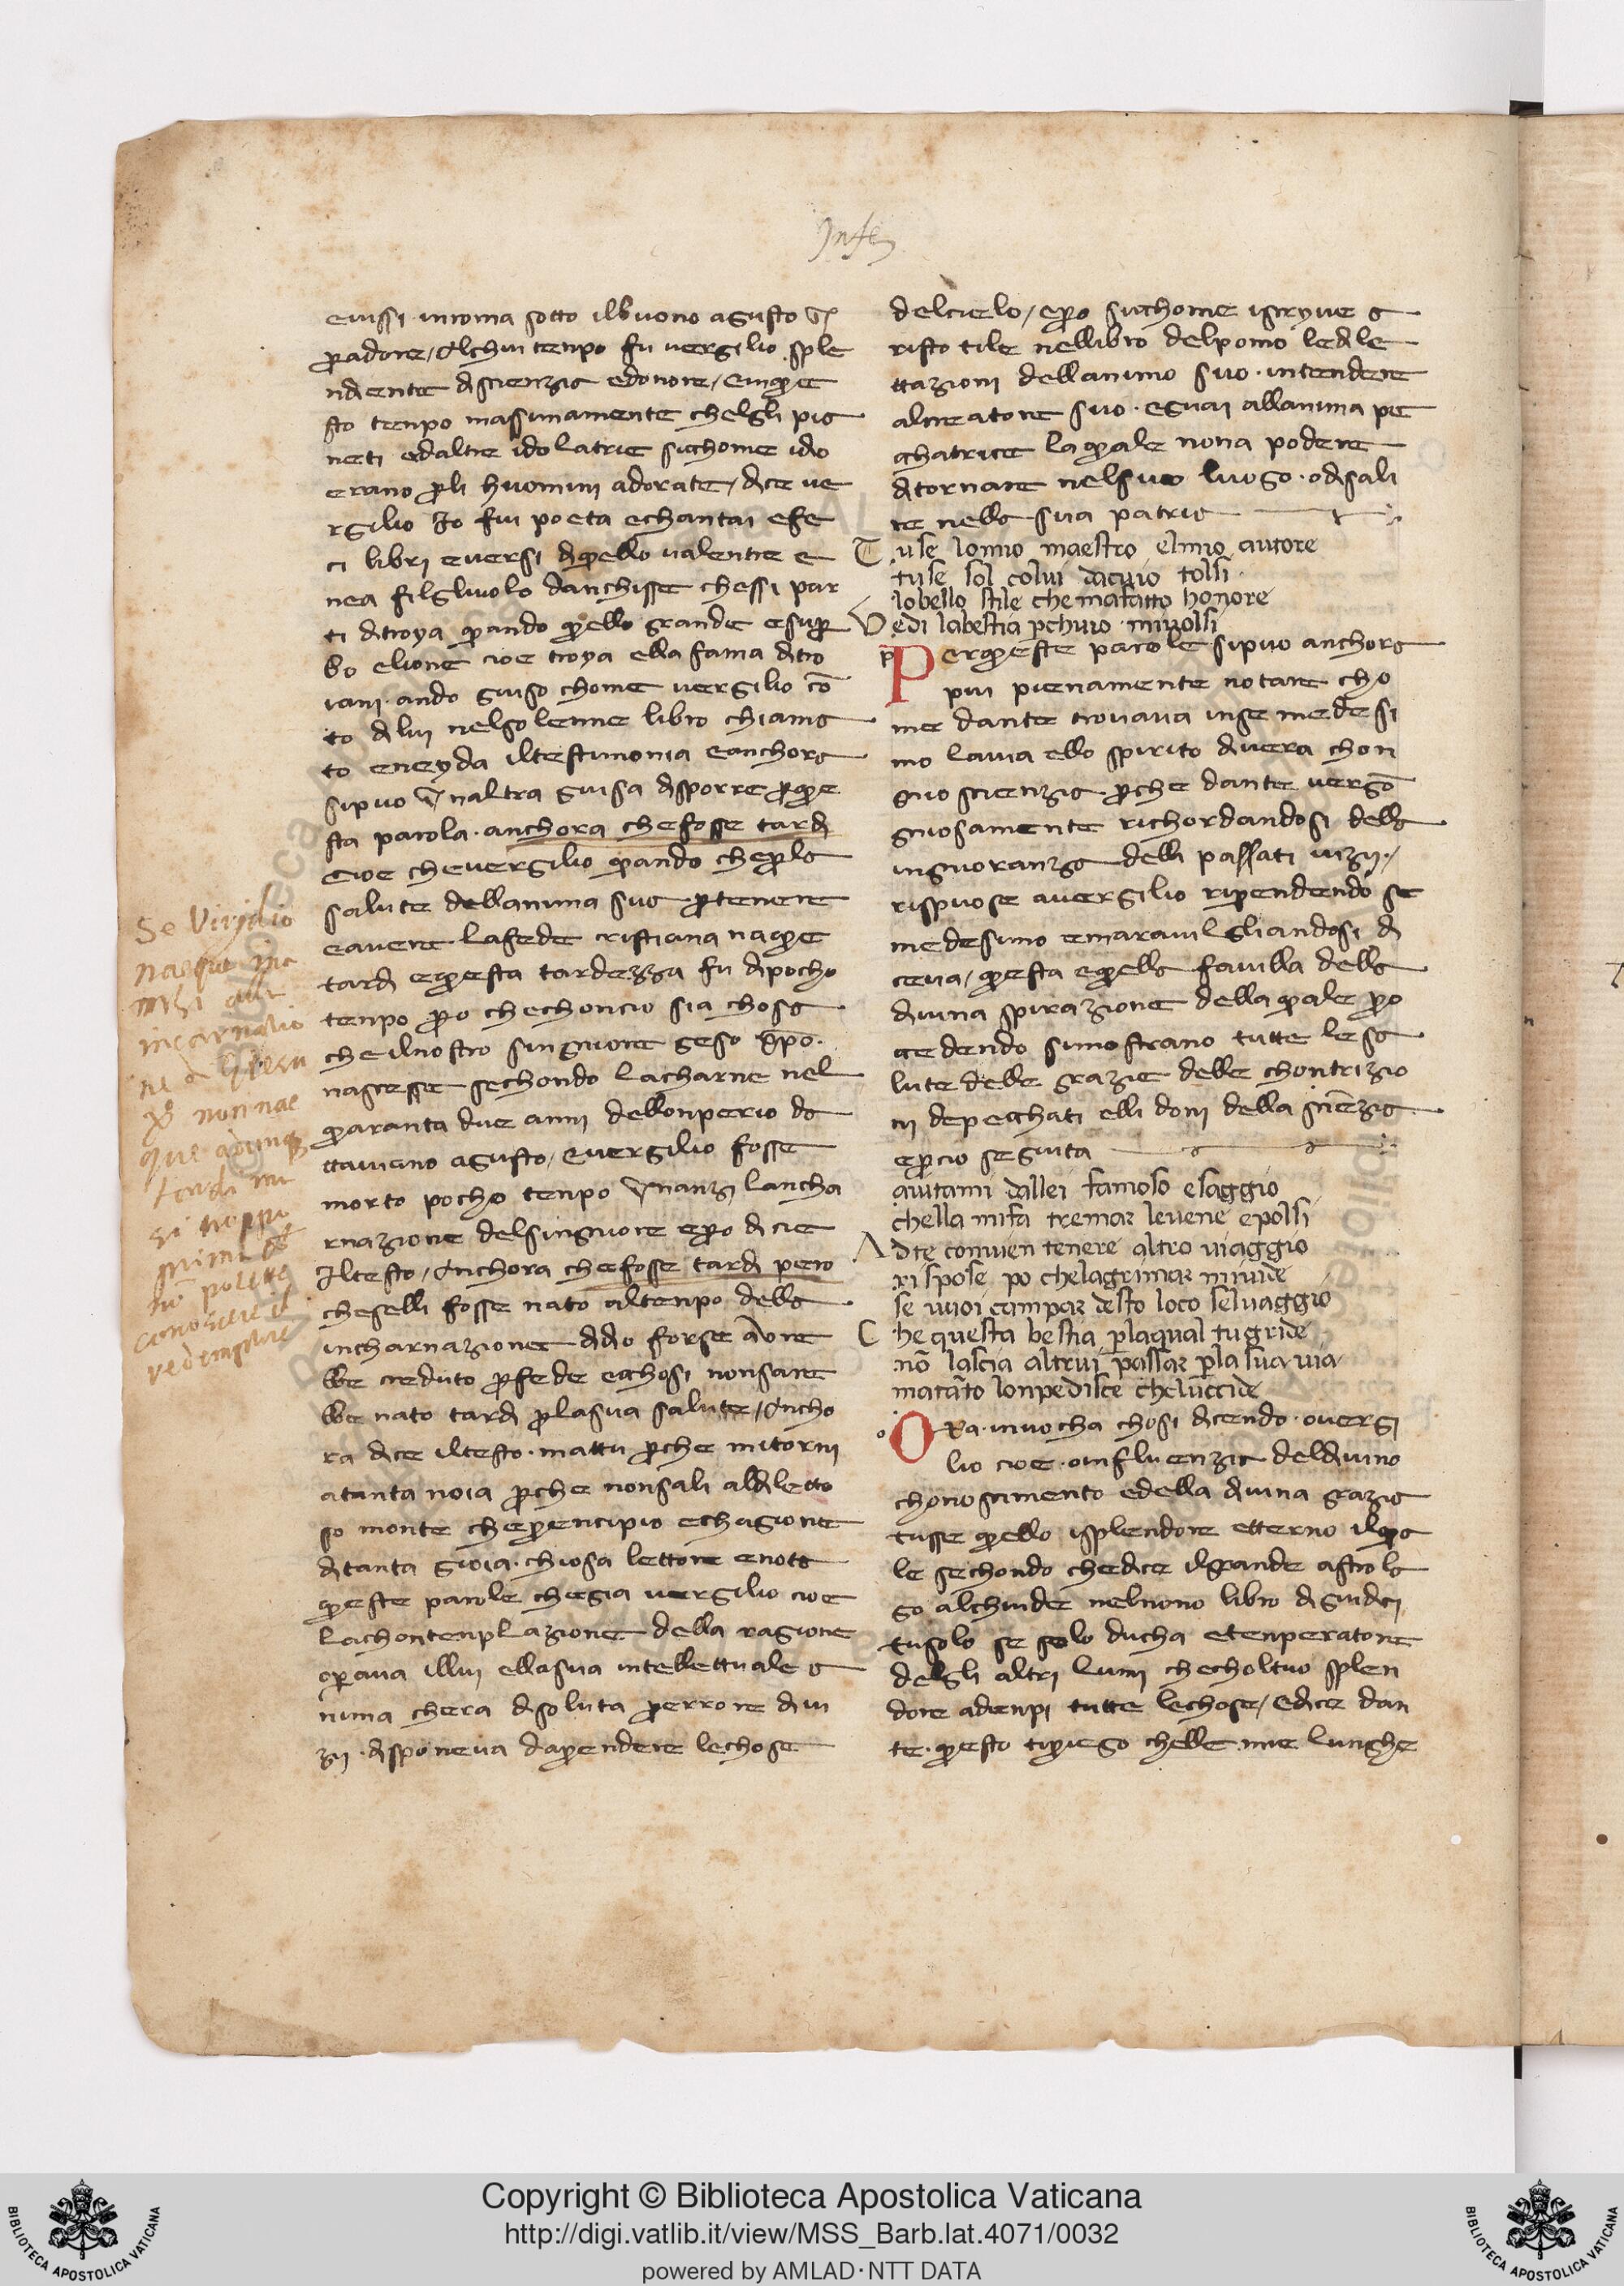 Infe
evissi inroma sotto ilbuono agusto
peradore, Alchui tenpo fu vergilio sple
ndiente discienzia edonore, einque
sto tenpo massimamente chelgli pia
neti edaltre idolatrie sichome idio
erano perli huomini adorate, dice ve
rgilio Io fui poeta echantai efe
ci libri eversi diquello valentre e
nea filgliuolo danchisse chessi par
ti ditroya quando quello grande esuper
bo elione cioe troya ella fama ditro
iani. ando guiso chome vergilio cō
to dilui nelsolenne libro chiama
to eneyda iltestimonia eanchora
sipuo inaltra guisa disporre perque
sta parola. anchora chefosse tardi
Cioe chevergilio quando cheperla
salute dellanima sua pertenere
eavere lafede cristiana naque
tardi equesta tardezza fu dipocho
tenpo pero chechoncio sia chosa
cheilnostro singniore geso xpō.
nascesse sechondo lacharne nel
quaranta due anni dellonperio do
ttaviano agusto, evergilio fosse
morto pocho tenpo innanzi lancha
rnazione delsingniore epero dicie
Iltesto, Anchora chefosse tardi pero
cheselli fosse nato altenpo della
incharnazione didio forse avere
bbe creduto perfede echosi nonsare
bbe nato tardi perlasua salute, Ancho
ra dice iltesto. mattu perche mitorni
atanta noia perche nonsali aldiletto
so monte cheprencipio echagione
ditanta gioia. chiosa lettore enota
queste parole chegia vergilio cioe
lachontenplazione della ragione
operava illui ellasua intellettuale a
nima chera disoluta perrrore divi
zij. disponeva daprendere lechose
Se Virgilio
nacque inā
nzi alla
incarnatio
ne di Giesu
xpo non nac
que adunq
tardi ma
si troppo
prima che
nō potette
conoscere il
redemptore
delcielo, epero sichome iscryve a
risto tile nellibro delpomo ledile
ttazioni dellanimo suo. intendere
alcreatore suo. eguai allanima pe
chatrice laquale nona podere
ditornare nelsuo luogo. odisali
re nella sua patria
Tuse lomio maestro elmio autore
tuse sol colui dacuio tolsi
lobello stile chemafatto honore
Vedi labestia pchuio mivolsi
Perqueste parole sipuo anchora
piu pienamente notare cho
me dante trovava inse medesi
mo lavia ello spirito divera chon
gnioscienzia perche dante vergō
gniosamente richordandosi della
ingnioranza delli passati vizij.
rispuose avergilio riprendendo se
medesimo emaravilgliandosi di
ceva, questa equella favilla della
divina spirazione dellaquale pro
cedendo simostrano tutte lesa
lute delle grazie delle chontrizio
ni depecchati elli doni della scienzia
epercio seguita
aiutami dallei famoso esaggio
chella mifa tremar levene epolsi
Adte convien tenere altro viaggio
rispose po chelagrimar mivide
se vuoi campar desto loco selvaggio
Che questa bestia plaqual tugride
nō lascia altrui passar pla sua via
matāto lonpedisce cheluccide
ORa. invocha chosi dicendo. overgi
lio cioe. oinfluenzia deldivino
chonoscimento edella divina grazia
tusse quello isplendore etterno ilqua
le sechondo chedice ilgrande astrola
go alchinde nelnono libro digiudici
tusolo se solo ducha etenperatore
delgli altri lumi checholtuo splen
dore adenpi tutte lechose, Edice dan
te. questo tipriego chelle mie lunghe
Copyright © Biblioteca Apostolica Vaticana
http://digi.vatlib.it/view/MSS_Barb.lat.4071/0032
powered by AMLAD·NTT DATA
BIBLIOTECA APOSTOLICA VATICANA
BIBLIOTECA APOSTOLICA VATICANA